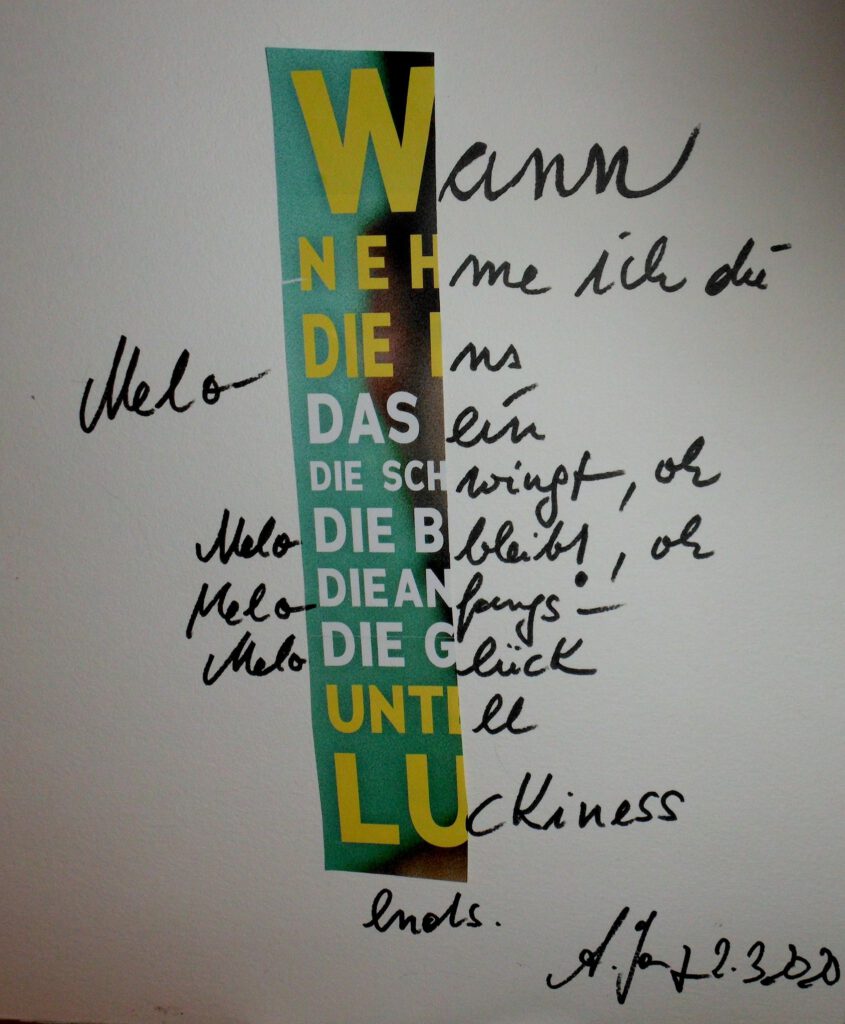 Wann
NEHme ich die
Melo-DIE Ins
DAS ein
DIE SCHwingt, oh
Melo DIE Bbleibt, oh
Melo-DIEANfangs-
Melo DIE Glück
UNTIll
LUcKiness
ends.
A. 2.3.2020